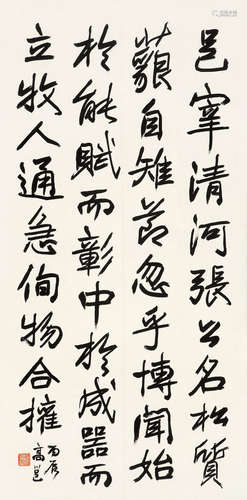 邑宰清河張公名松質
藐自雉節忽乎博聞始
於能賦而彰中於成器而
立牧人通急侚物合擁
丙辰
高邕